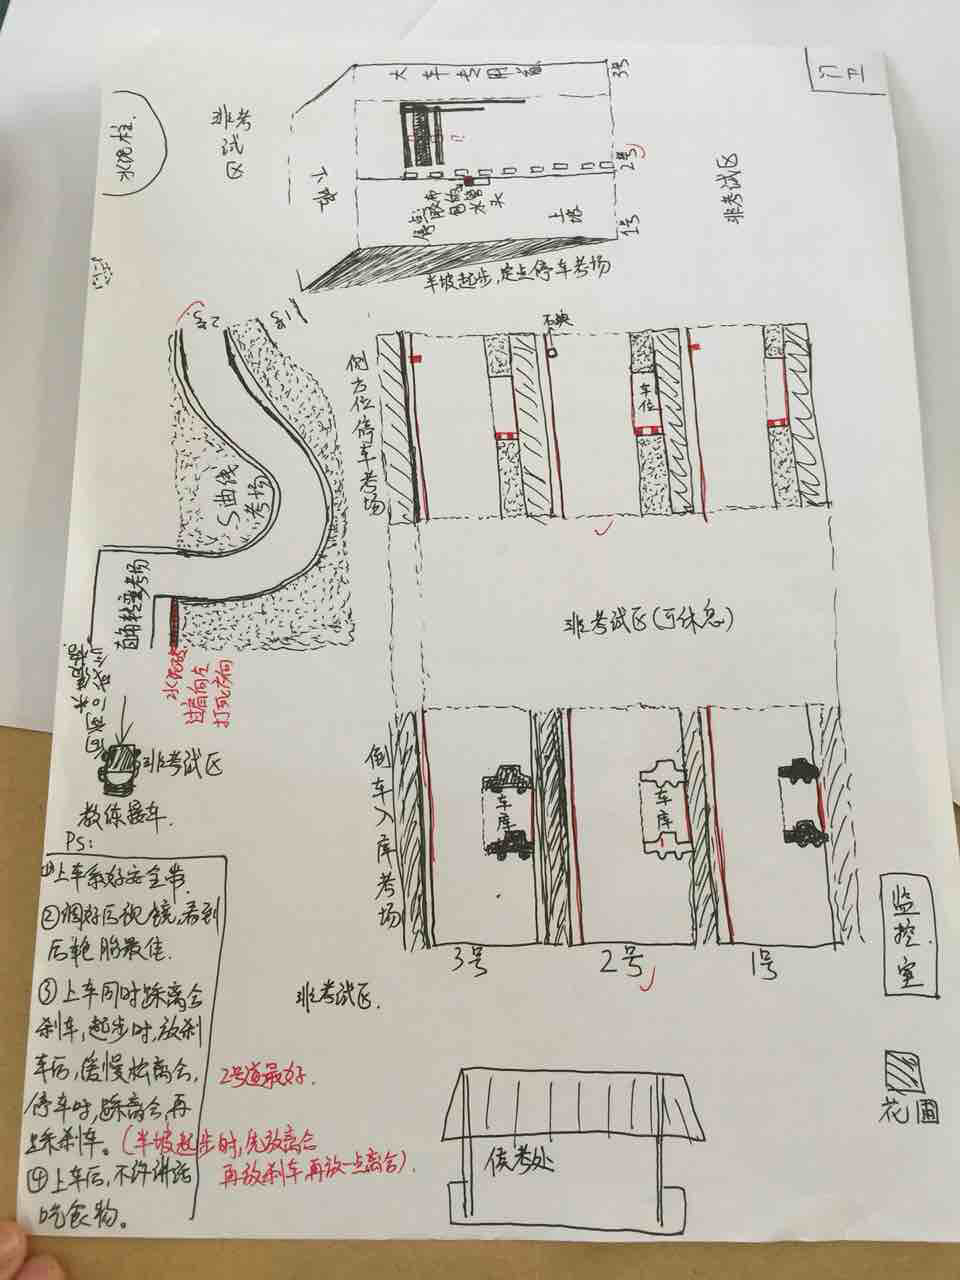 门卫
水泥柱.
非考试区
大车专用道
3号
2号
1号
下坡
上坡
非考试区
半坡起步,定点停车考场
2号
1号
石块
侧方位停车考场
车位
S曲线考场
直角转弯考场
水泥砖
过肩向左
打死方向
非考试区(可休息)
非考试区
教练接车.
倒车入库考场
车库
车库
3号
2号
1号
监控室
非考试区.
花圃
候考处
2号道最好.
Ps:
①上车系好安全带.
②调好后视镜,看到
后轮胎最佳.
③上车同时踩离合
刹车,起步时,放刹
车后,缓慢松离合,
停车时,踩离合,再
踩刹车。(半坡起步时,先放离合
再放刹车,再放一点离合).
④上车后,不许讲话
吃食物。